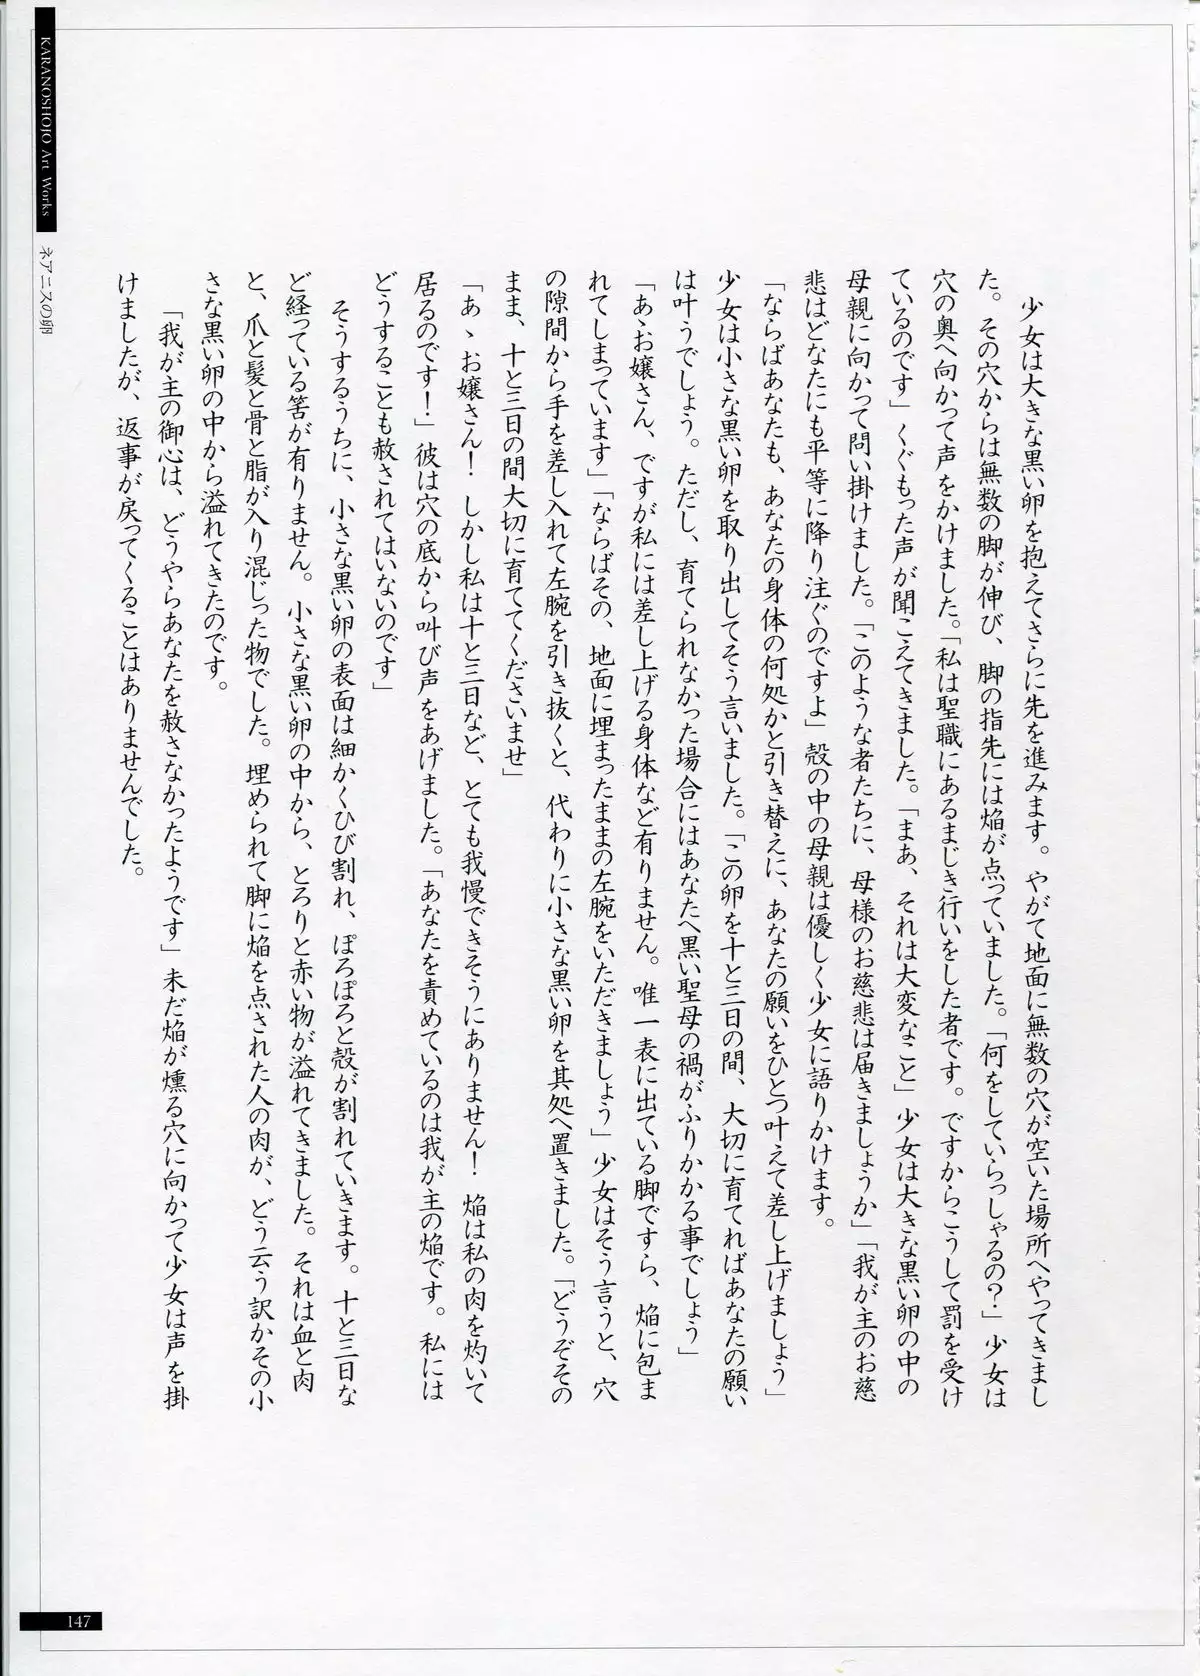 KARANOSHOJO Art Works
ネアニスの卵
少女は大きな黒い卵を抱えてさらに先を進みます。やがて地面に無数の穴が空いた場所へやってきまし
た。その穴からは無数の脚が伸び、脚の指先には焔が点っていました。「何をしていらっしゃるの？」少女は
穴の奥へ向かって声をかけました。「私は聖職にあるまじき行いをした者です。ですからこうして罰を受け
ているのです」くぐもった声が聞こえてきました。「まあ、それは大変なこと」少女は大きな黒い卵の中の
母親に向かって問い掛けました。「このような者たちに、母様のお慈悲は届きましょうか」「我が主のお慈
悲はどなたにも平等に降り注ぐのですよ」殻の中の母親は優しく少女に語りかけます。
「ならばあなたも、あなたの身体の何処かと引き替えに、あなたの願いをひとつ叶えて差し上げましょう」
少女は小さな黒い卵を取り出してそう言いました。「この卵を十と三日の間、大切に育てればあなたの願い
は叶うでしょう。ただし、育てられなかった場合にはあなたへ黒い聖母の禍がふりかかる事でしょう」
「あゝお嬢さん、ですが私には差し上げる身体など有りません。唯一表に出ている脚ですら、焔に包ま
れてしまっています」「ならばその、地面に埋まったままの左腕をいただきましょう」少女はそう言うと、穴
の隙間から手を差し入れて左腕を引き抜くと、代わりに小さな黒い卵を其処へ置きました。「どうぞその
まま、十と三日の間大切に育ててくださいませ」
「あゝお嬢さん！しかし私は十と三日など、とても我慢できそうにありません！焔は私の肉を灼いて
居るのです！」彼は穴の底から叫び声をあげました。「あなたを責めているのは我が主の焔です。私には
どうすることも赦されてはいないのです」
そうするうちに、小さな黒い卵の表面は細かくひび割れ、ぽろぽろと殻が割れていきます。十と三日な
ど経っている筈が有りません。小さな黒い卵の中から、とろりと赤い物が溢れてきました。それは血と肉
と、爪と髪と骨と脂が入り混じった物でした。埋められて脚に焔を点された人の肉が、どう云う訳かその小
さな黒い卵の中から溢れてきたのです。
「我が主の御心は、どうやらあなたを赦さなかったようです」未だ焔が燻る穴に向かって少女は声を掛
けましたが、返事が戻ってくることはありませんでした。
147